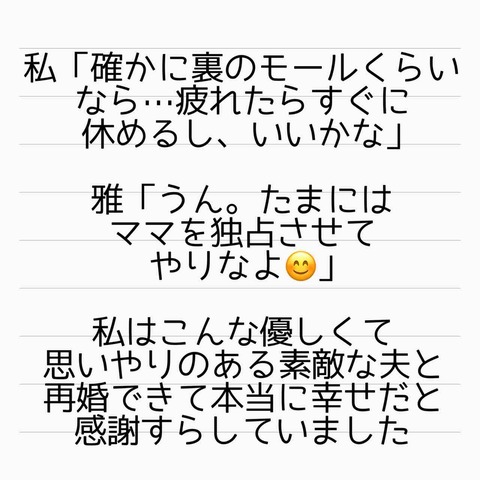 私「確かに裏のモールくらい
なら…疲れたらすぐに
休めるし、いいかな」
雅「うん。たまには
ママを独占させて
やりなよ😊」
私はこんな優しくて
思いやりのある素敵な夫と
再婚できて本当に幸せだと
感謝すらしていました